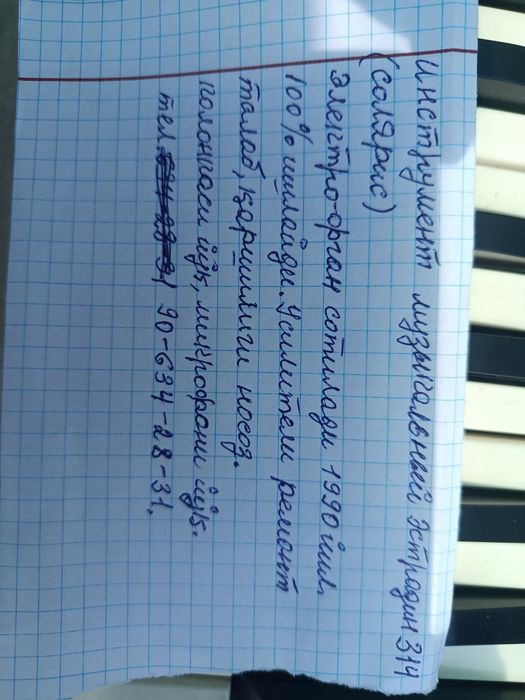 инструмент музыкальный Эстрадин 314
(солярис)
Электро-орган сотилади 1990 йил.
100% ишлайди. Усилители ремонт
талаб, қаршилиги носоз.
колонкаси йўқ, микрофони йўқ.
тел. 90-634-28-31.